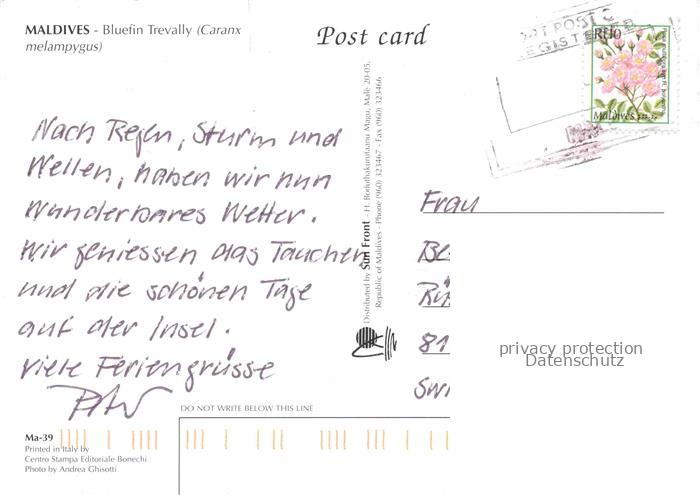 MALDIVES - Bluefin Trevally (Caranx
melampygus)
Post card
POST
REGISTERED
Rf10
Maldives
Nach Regen, Sturm und
Wellen, haben wir nun
wunderbares Wetter.
Wir geniessen das Tauchen
und die schönen Tage
auf der Insel.
viele Feriengrüsse
Distributed by Sun Front - H. Boduthakurufaanu Magu, Malé 20-05,
Republic of Maldives - Phone (960) 323467 - Fax (960) 323466
Frau
Be
81
Swi
privacy protection
Datenschutz
DO NOT WRITE BELOW THIS LINE
Ma-39
Printed in Italy by
Centro Stampa Editoriale Bonechi
Photo by Andrea Ghisotti